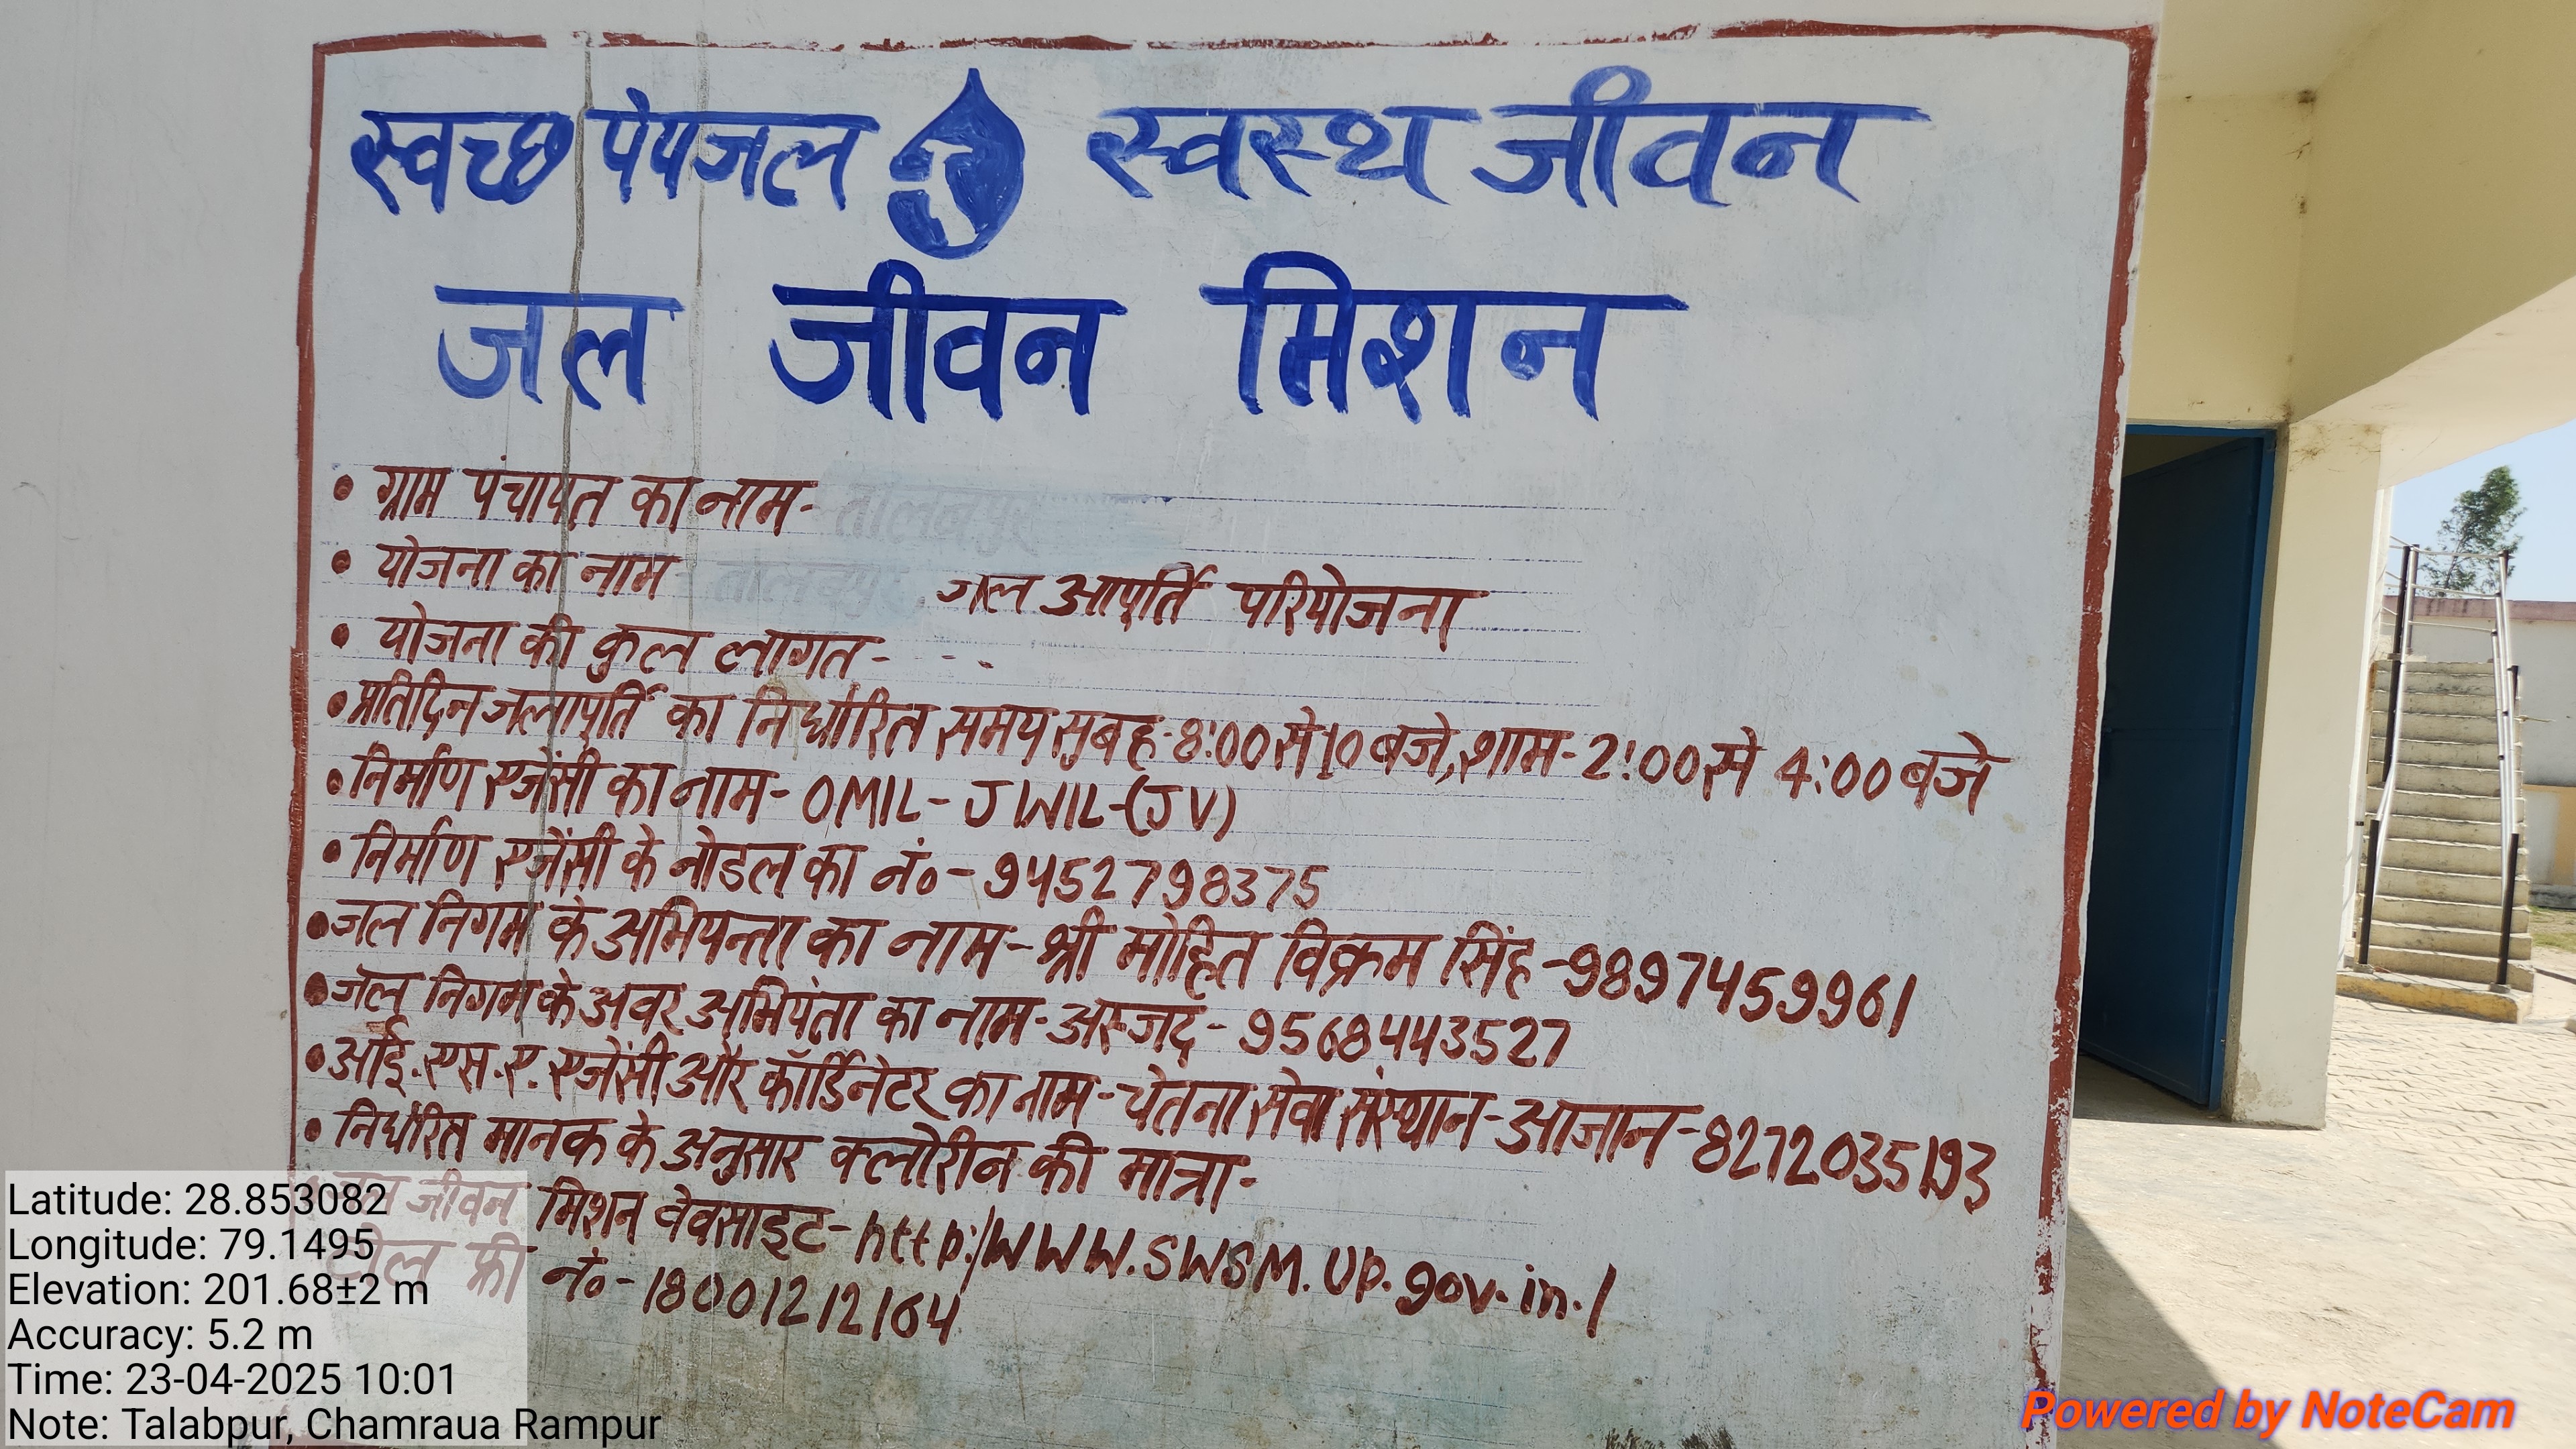 स्वच्छ पेयजल स्वस्थ जीवन
जल जीवन मिशन
• ग्राम पंचायत का नाम-
• योजना का नाम - जल आपूर्ति परियोजना
• योजना की कुल लागत- - - -
• प्रतिदिन जलापूर्ति का निर्धारित समय सुबह-8:00 से 10 बजे, शाम-2:00 से 4:00 बजे
• निर्माण एजेंसी का नाम- OMIL- JWIL-(JV)
• निर्माण एजेंसी के नोडल का नं०-9452798375
• जल निगम के अभियन्ता का नाम-श्री मोहित विक्रम सिंह-9897459961
• जल निगम के अवर अभियंता का नाम-अस्जद- 9568443527
• आई.एस.ए. एजेंसी और कॉर्डिनेटर का नाम-चेतना सेवा संस्थान-आजान-8272035193
• निर्धारित मानक के अनुसार क्लोरीन की मात्रा-
जल जीवन मिशन वेवसाइट-http:/WWW.SWSM.UP.gov.in./
टोल फ्री नं०-18001212164
Latitude: 28.853082
Longitude: 79.1495
Elevation: 201.68±2 m
Accuracy: 5.2 m
Time: 23-04-2025 10:01
Note: Talabpur, Chamraua Rampur
Powered by NoteCam